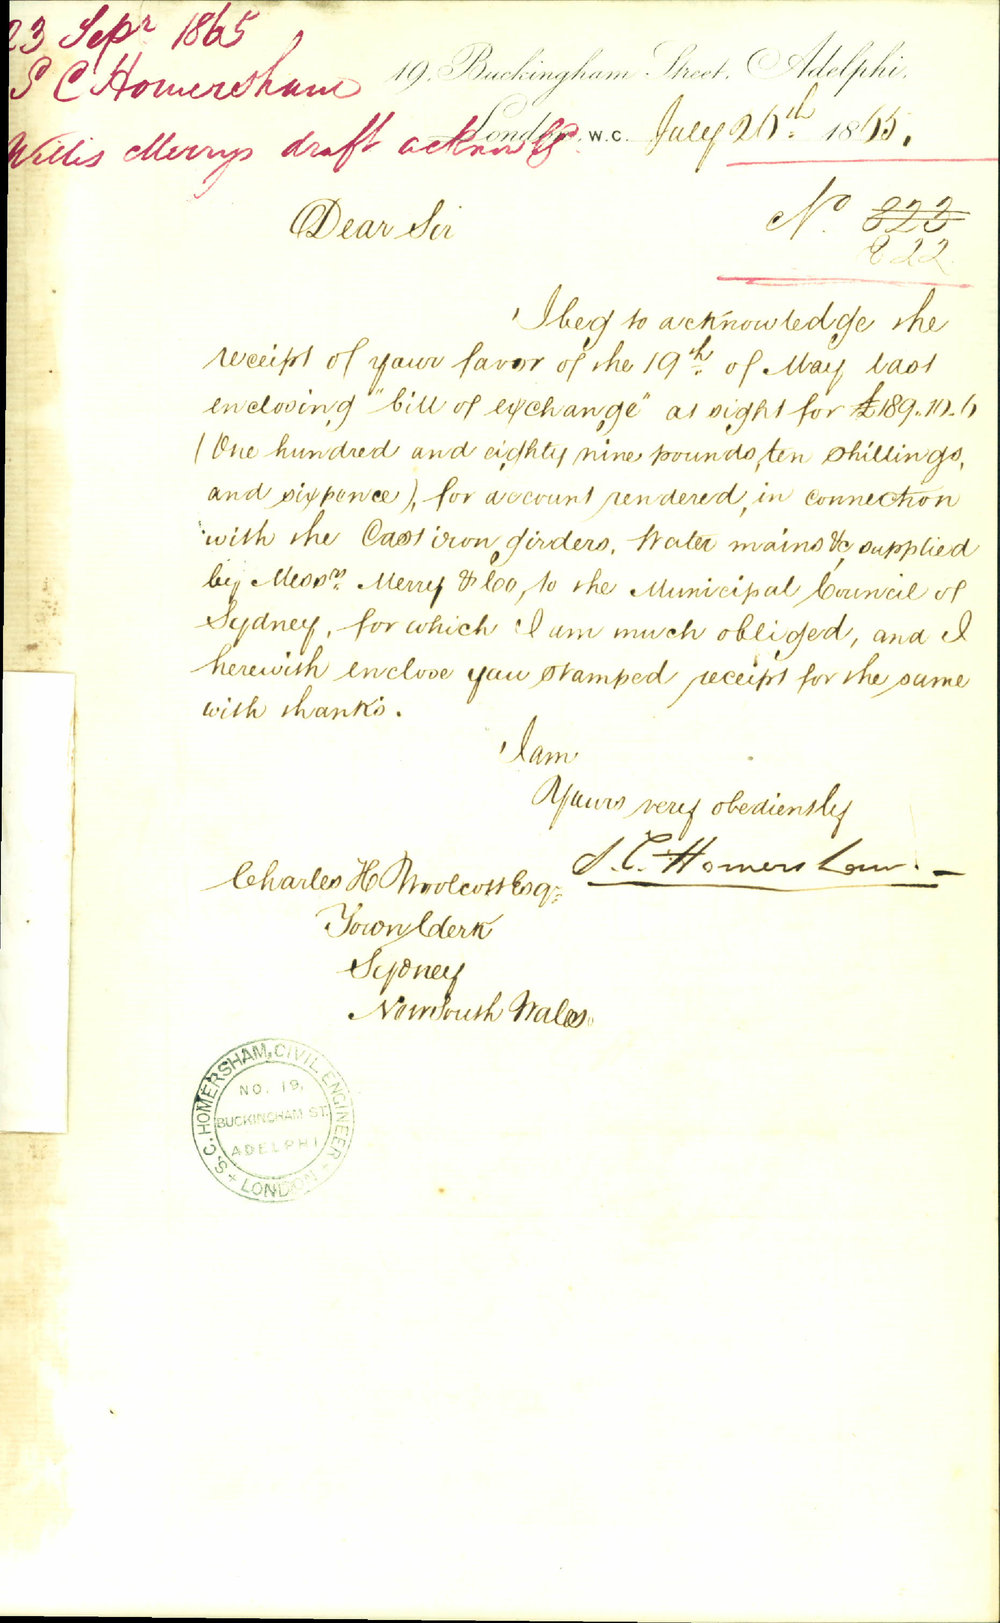 23 Sepr 1865
S C Homersham
Willis Merrys draft acknowg
19. Buckingham Street. Adelphi.
London, W.C. July 26th 1865.
Dear Sir
No. 823
822
I beg to acknowledge the
receipt of your favor of the 19th of May last
enclosing "bill of exchange" at sight for £189.10.6
(One hundred and eighty nine pounds, ten shillings,
and sixpence), for account rendered, in connection
with the Cast iron girders, Water mains &c, supplied
by Messrs. Merry & Co, to the Municipal Council of
Sydney, for which I am much obliged, and I
herewith enclose you stamped receipt for the same
with thanks.
I am
Yours very obediently
S. C. Homersham.
Charles H Woolcott Esqr
Town Clerk
Sydney
New South Wales.
S. C. HOMERSHAM, CIVIL ENGINEER
NO. 19.
BUCKINGHAM ST.
ADELPHI
LONDON